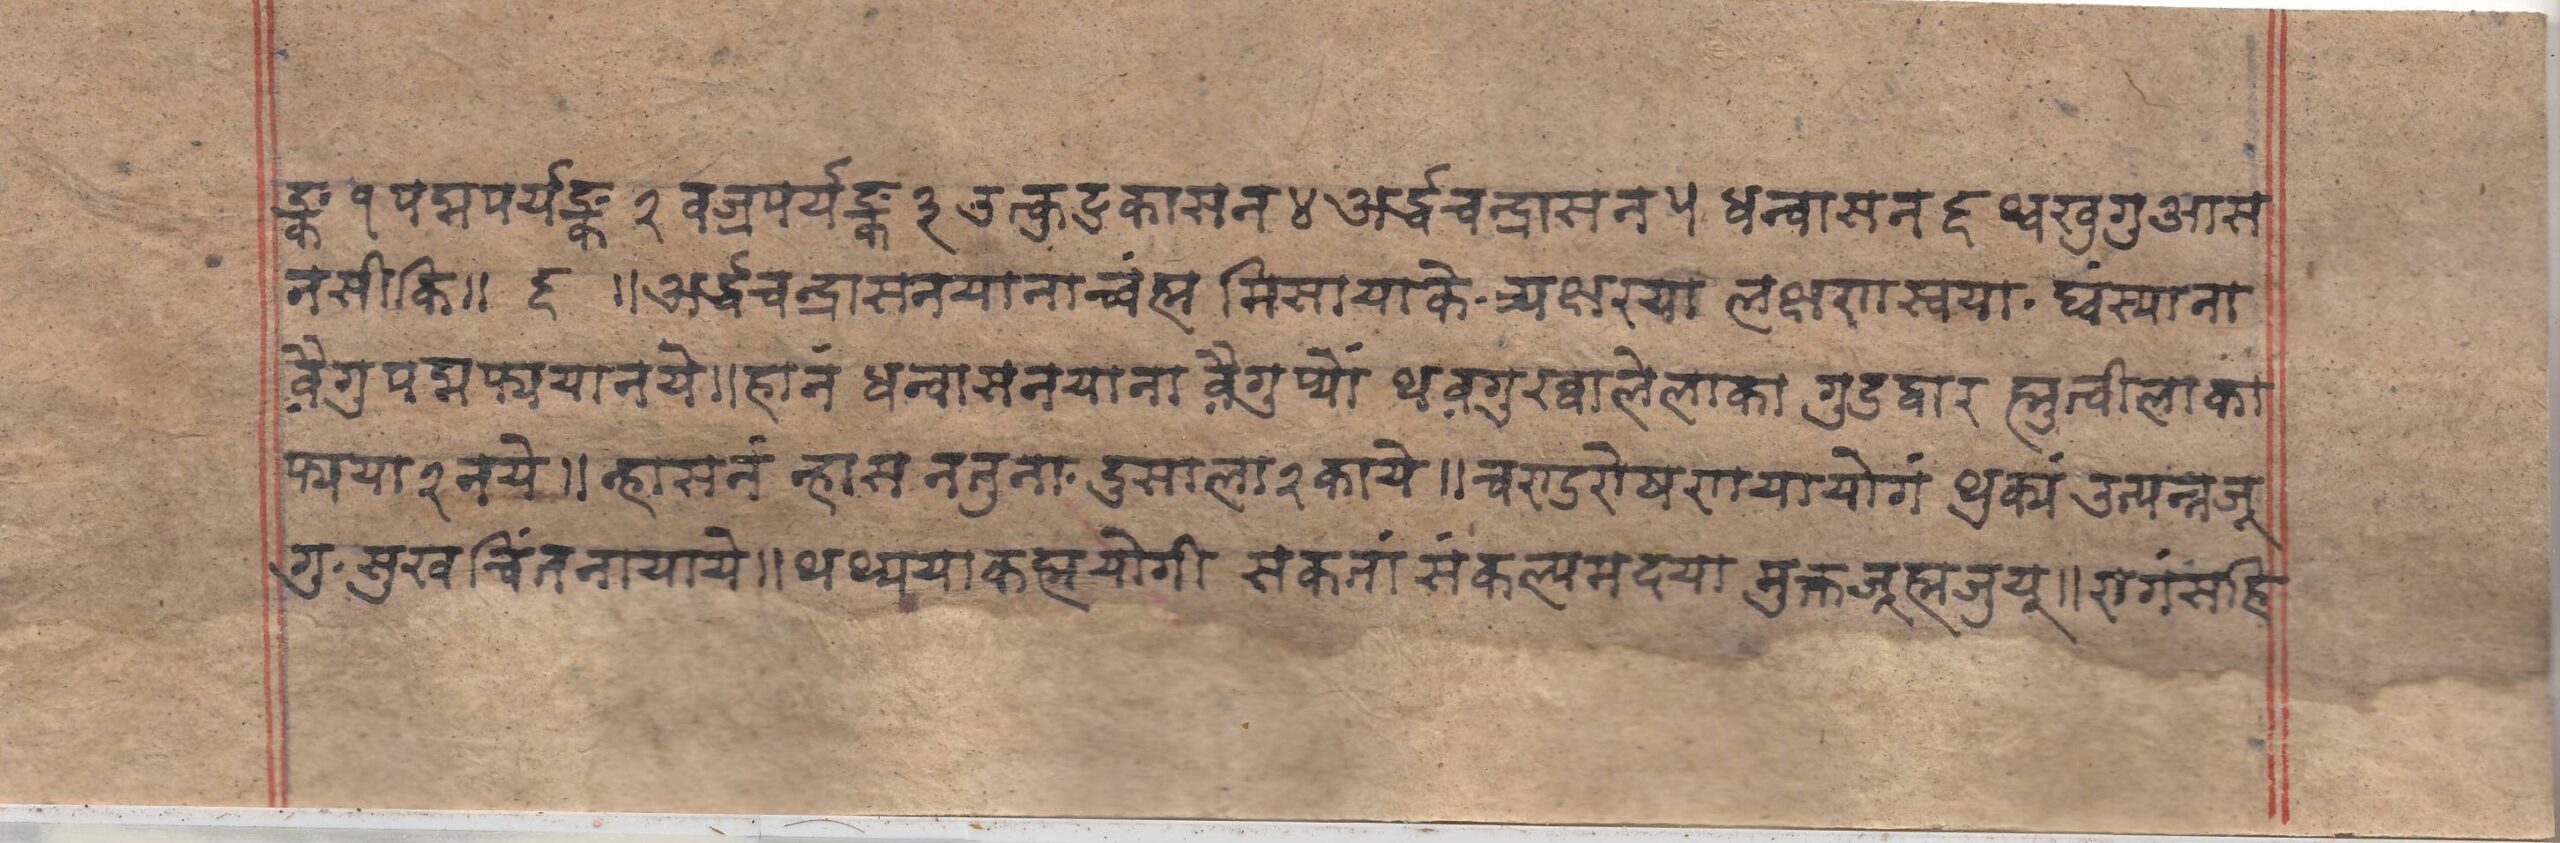 ङ्क १ पद्मपर्यङ्क २ वज्रपर्यङ्क ३ उत्कुटुकासन ४ अर्द्धचन्द्रासन ५ धन्वासन ६ थ्व खुगु आस
नसीकि ॥ ६ ॥ अर्द्धचन्द्रासनयाना च्वंह्म मिसायाके त्र्यक्षरया लक्षणास्वया घ्वंस्याना
वैगु पद्मफ्ययानये ॥ हानं धन्वासनयाना वैगु प्यों थवगु ख्वालेलाका गुदद्वार ह्नुत्वीलाका
फ्यया २ नये ॥ न्हासनं न्हास नतुना दुसाला २ काये ॥ चण्डरोषणयायोगं थ्रुक्यं उत्पन्नजू
गु सुख चिंतनायाये ॥ थथ्ययाकह्म योगी सकतां संकल्पमदया मुक्तजूह्मजुयू ॥ रागंसहि